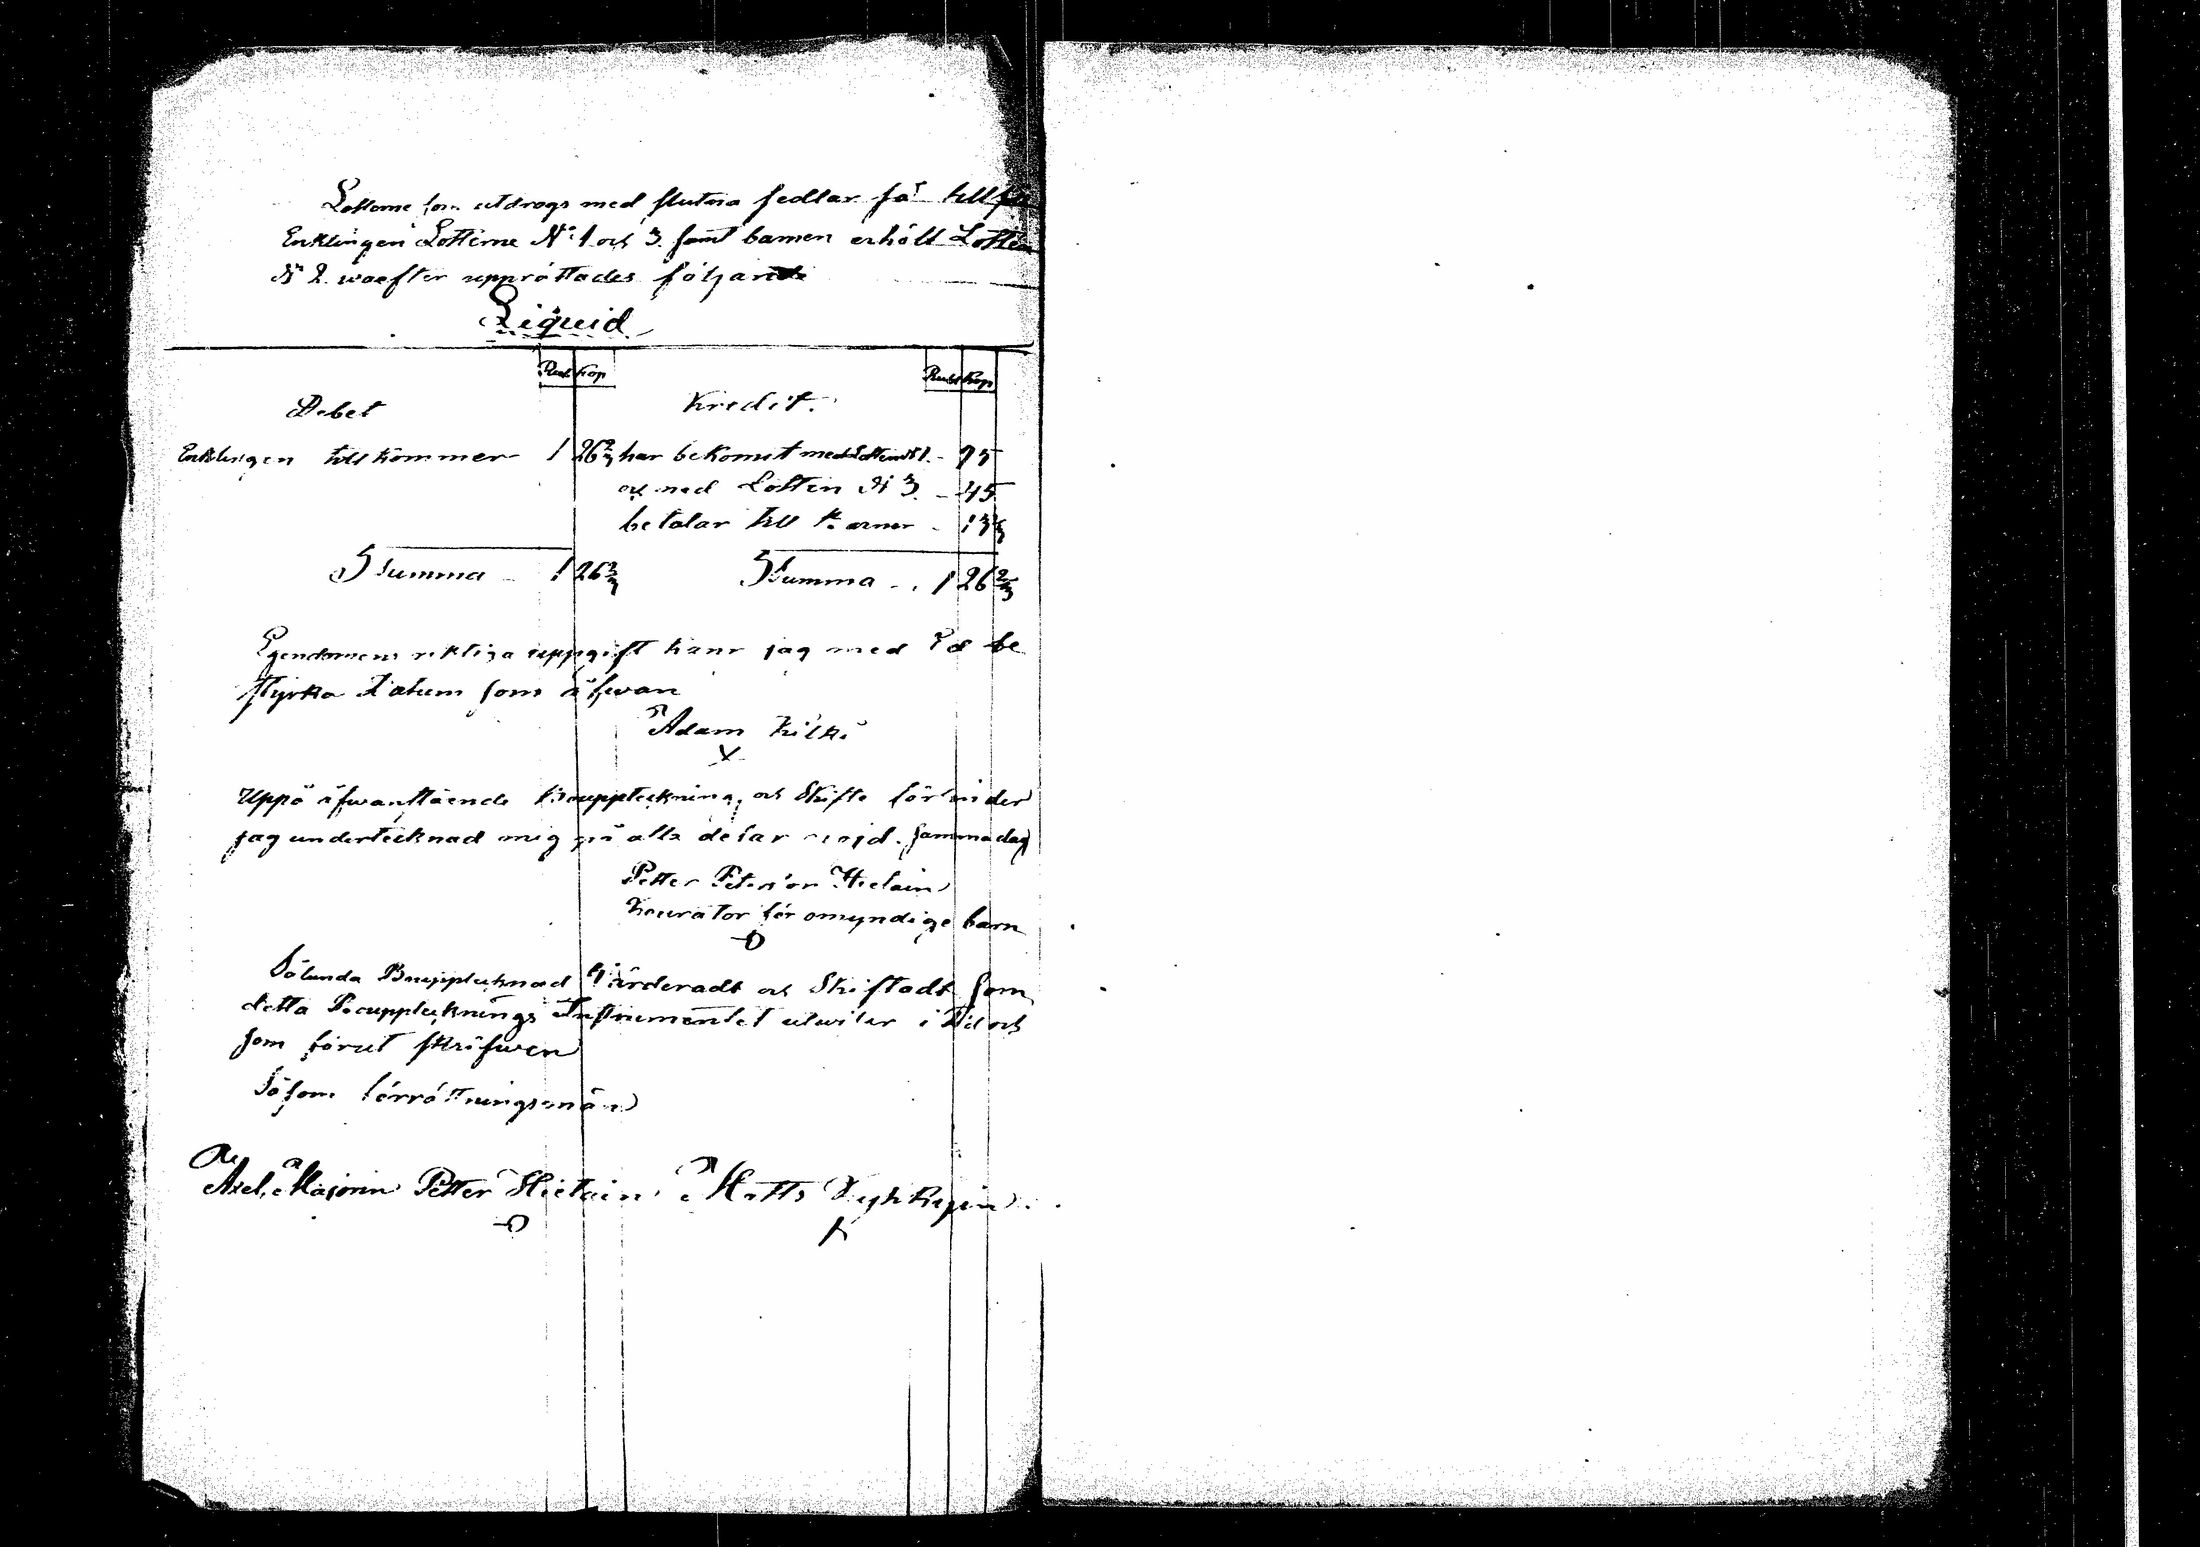 Lotterne som utdrogs med slutna sedlar så till
Enklingen Lotterne N:o 1 och 3. samt barnen erhöll Lotten
N 2. warefter upprättades följande
Liquid
Rub Kop Rub Kop
Debet Kredit.
Enklingen tillkommer 1 26 2/3 har bekomit med Lotten N 1. - 75
och med Lotten N 3. - 45
betalar till
Summa - 1 26 2/3 Summa - 1 26 2/3
Egendomens riktiga uppgift kann jag med Ed be
styrka Datum som äfwan
Adam
Uppå äfwanstående Bouppteckning och Skifte förbinder
jag undertecknad mig på alla delar nöjd. samma dag
Petter Peterson Hietain
Kurator för omyndige barn
Sålunda Bouppteknad Wärderadt och Skiftadt som
detta Bouppteknings Instrumentet utwisar i Tid och
som förut skrifwen
Såsom förrättningsmän
Axel Petter Hietain Matts